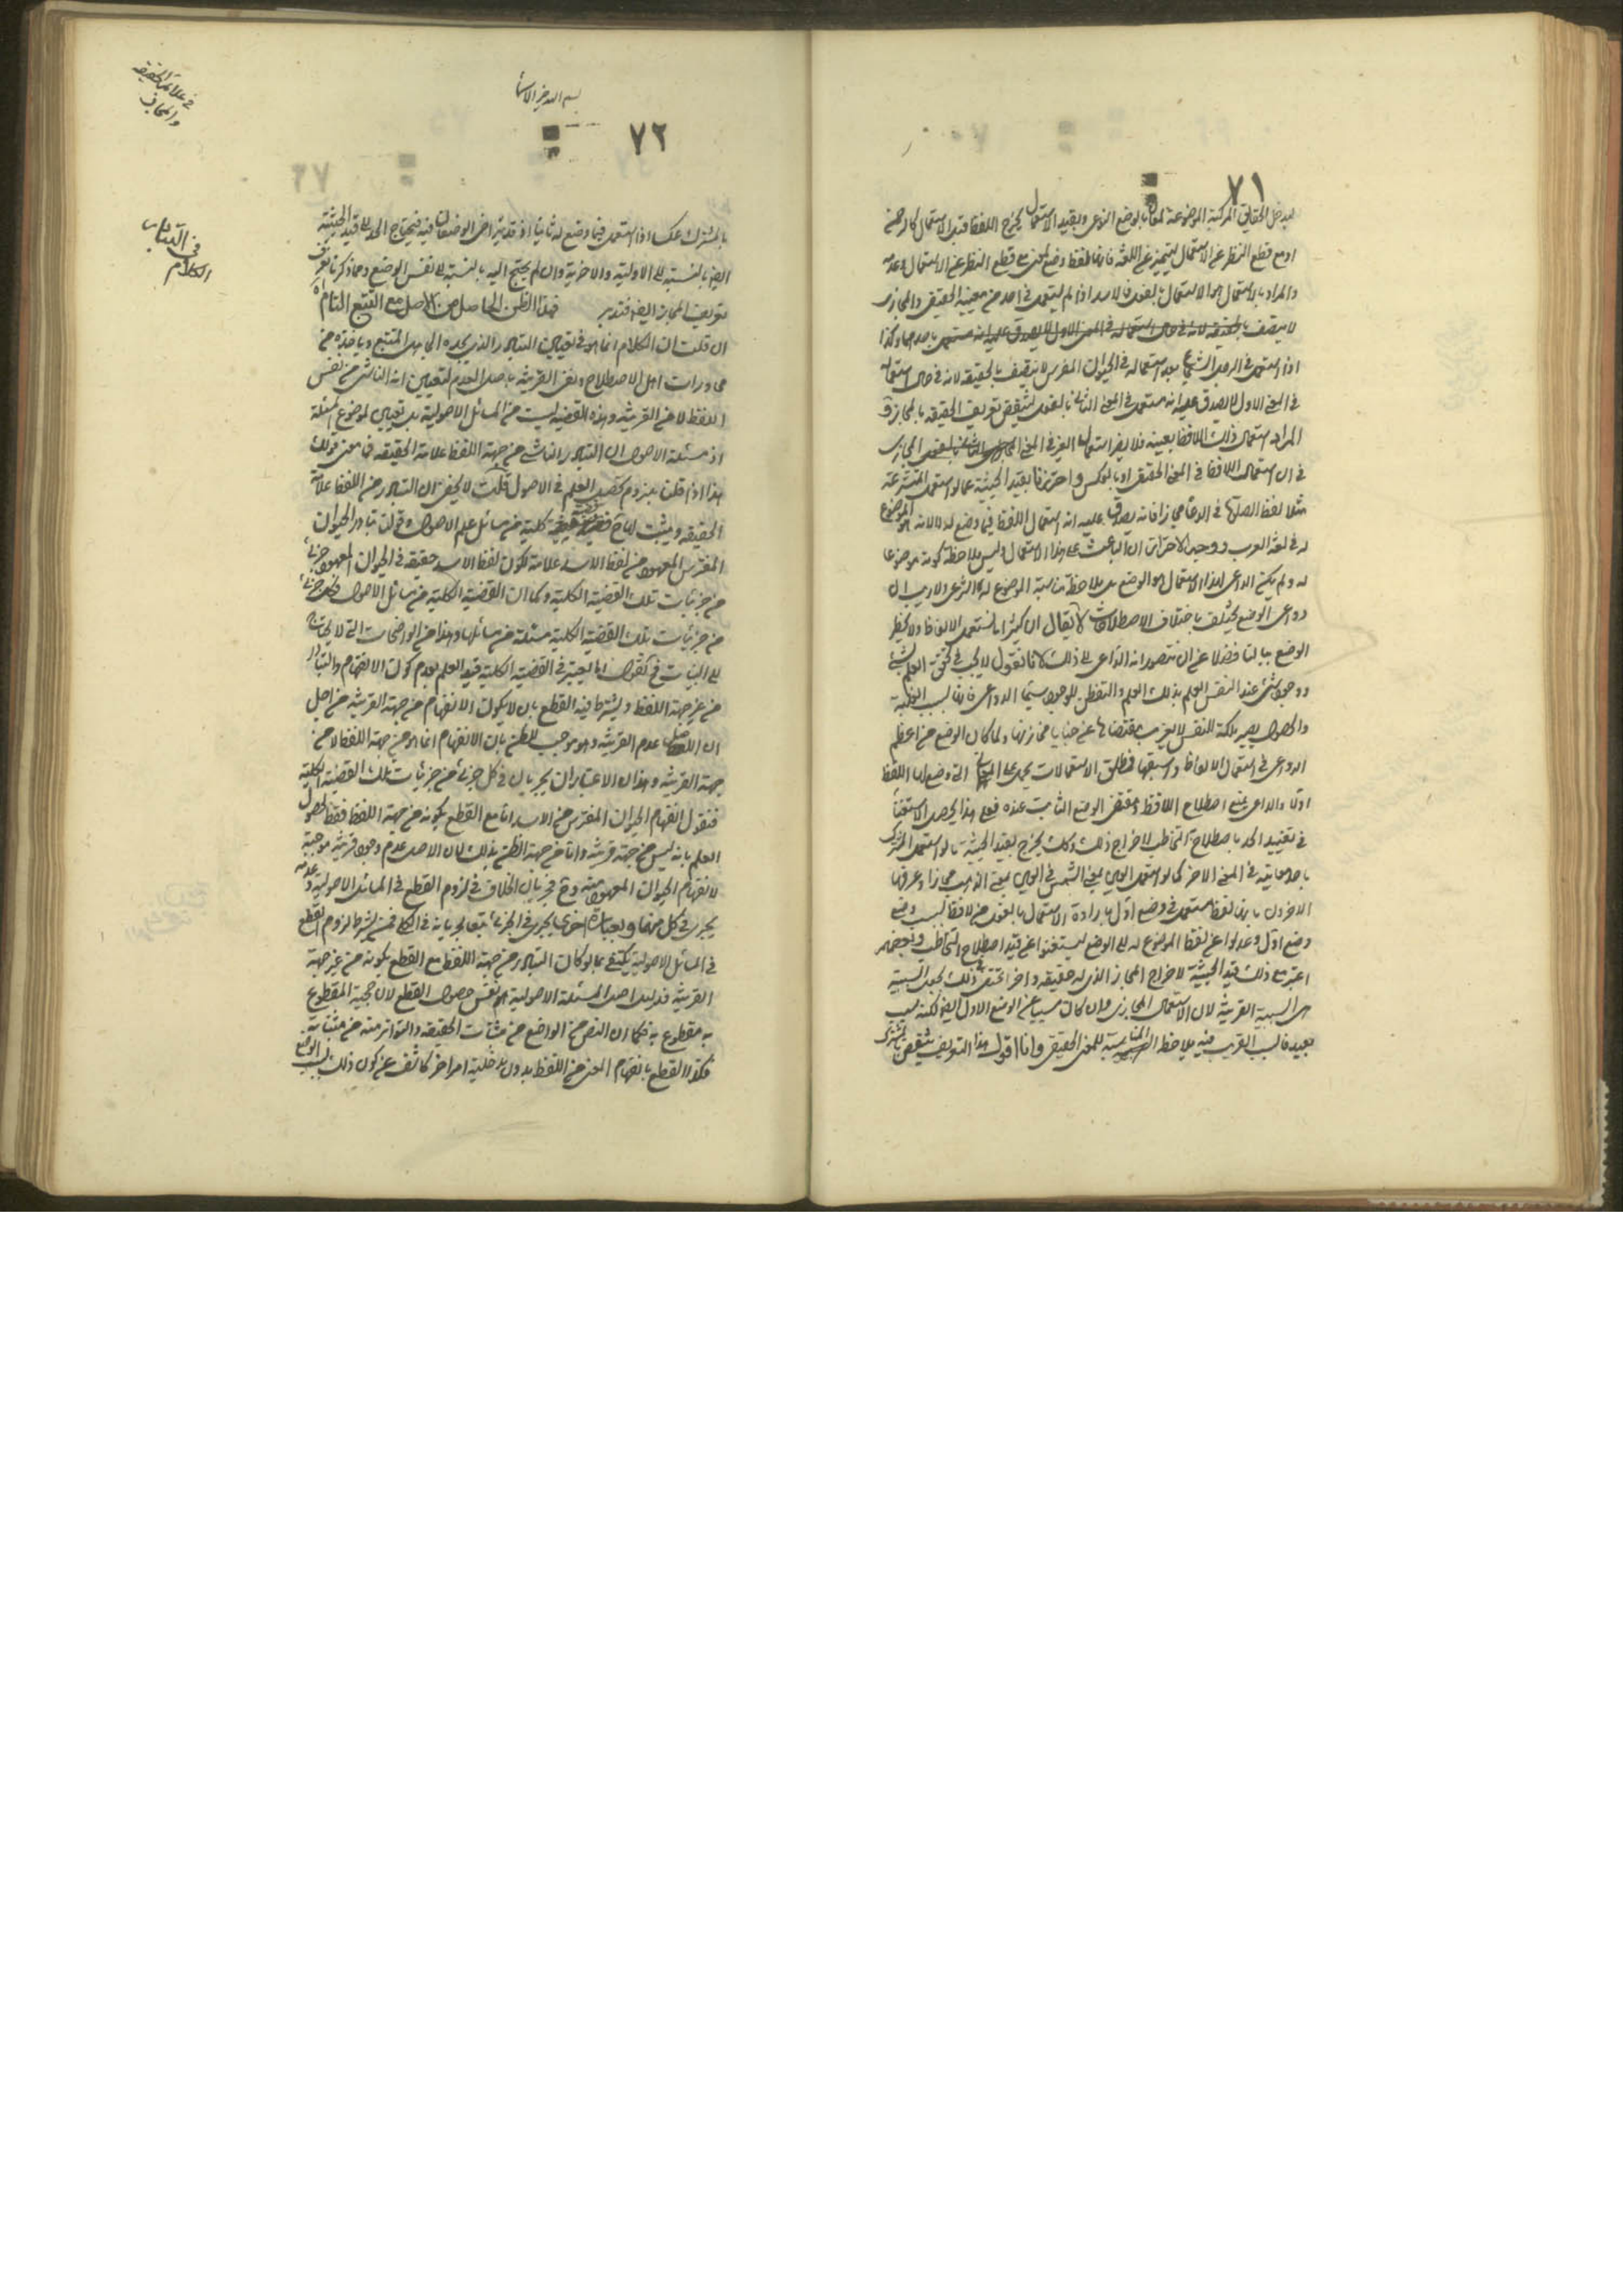 ٧١
ليدخل الحقايق المركبة الموضوعة لمعانيها بوضع النوعى وبقيد الاستعمال يخرج اللفظ قبل الاستعمال كالرحمن
او مع قطع النظر عن الاستعمال ليتميز عن اللغة فانها لفظ وضع لمعنى مع قطع النظر عن الاستعمال وعدمه
والمراد بالاستعمال هو الاستعمال بالفعل فالاسد اذا لم يستعمل فى احد من معنييه الحقيقى والمجازى
لا يتصف بالحقيقة لانه فى حال استعماله فى المعنى الاول لا يصدق عليه انه مستعمل باحدهما وكذا
اذا استعمل فى الرجل الشجاع بعد استعماله فى الحيوان المفترس لا يتصف بالحقيقة لانه فى حال استعماله
فى المعنى الاول لا يصدق عليه انه مستعمل فى المعنى الثانى بالفعل لينتقض تعريف الحقيقة بالمجاز و
المراد استعمال ذلك اللافظ بعينه فلا يضر استعمال الغير فى المعنى المجازى
فى ان استعمال اللافظ فى المعنى الحقيقى او بالعكس واحترزنا بقيد الحيثية عما لو استعمل المتشرعة
مثلا لفظ الصلوة فى الدعا مجازا فانه يصدق عليه انه استعمال اللفظ فيما وضع له لا لانه الموضوع
له فى لغة العرب ووجه الاحتراز ان الباعث على هذا الاستعمال وليس ملاحظة كونه موضوعا
له ولم يكن الداعى لهذا الاستعمال هو الوضع بل ملاحظة مناسبة الموضوع له الشرعى ولا ريب ان
دواعى الوضع يختلف باختلاف الاصطلاحات لا يقال ان كثيرا ما نستعمل الالفاظ ولا يخطر
الوضع ببالنا فضلا عن ان نتصور انه الداعى الى ذلك لانا نقول لا يجب فى تحقق العلم بشئ
ووجود شئ عند النفس العلم بذلك العلم والتفطن للوجود سيما الدواعى فانها بسبب الغلبة
والحصول يصير ملكة للنفس لا يعزب مقتضاها عن خبايا مخازنها ولما كان الوضع من اعظم
الدواعى فى استعمال الالفاظ واسبقها فمطلق الاستعمالات يحمل على المعانى التى وضع لها اللفظ
اولا والداعى يتبع اصطلاح اللافظ ومقتضى الوضع الثابت عنده فعلى هذا يحصل الاستغناء
فى تقييد الحد باصطلاح التخاطب لاخراج ذلك وكذلك يخرج بقيد الحيثية ما لو استعمل المشترك
باحد معانيه فى المعنى الاخر كما لو استعمل العين بمعنى الشمس فى العين بمعنى الذهب مجازا وعرفها
الاخرون بانها لفظ مستعمل فى وضع اول بارادة الاستعمال بالفعل من لافظ بسبب وضع
وضع اول وعدلوا عن لفظ الموضوع له الى الوضع ليستغنوا عن قيد اصطلاح التخاطب وبعضهم
اعتبر مع ذلك قيد الحيثية لاخراج المجاز الذى له حقيقة واخر اغتنى ذلك بجعل السببية
هى السببية القريبة لان الاستعمال المجازى وان كان مسببا عن الوضع الاول ايضا لكنه سبب
بعيد فالسبب القريب فيه ملاحظة المناسبة للمعنى الحقيقى وانا اقول هذا التعريف ينتقض بالمشترك
بسم الله خير الاسماء
٧٢
فى علائم الحقيقة
والمجاز
بالمشترك عكسا اذا استعمل فيما وضع له ثانيا اذ قد يتراخى الوضعان فيه فيحتاج الحد الى قيد الحيثية
ايضا بالنسبة الى الاولية والاخرية وان لم يحتج اليه بالنسبة الى نفس الوضع ومما ذكرنا يعرف
تعريف المجاز ايضا فتدبر فهذا الظن الحاصل من الاصل مع التتبع التام
فى التبادر
الكلام
ان قلت ان الكلام انما هو فى تعيين التبادر الذى يجده الجاهل المتتبع وياخذه من
محاورات اهل الاصطلاح ونفى القرينة باصل العدم لتعيين انه الناشى من نفس
اللفظ لا من القرينة وهذه القضية ليست من المسائل الاصولية بل تعيين لموضوع المسئلة
اذ مسئلة الاصول ان التبادر الناشى من جهة اللفظ علامة الحقيقة فما معنى قولك
هذا اذا قلنا بلزوم تحصيل العلم فى الاصول قلت لا يخفى ان التبادر من اللفظ علامة
الحقيقة ويثبت كلية من مسائل علم الاصول وقولنا تبادر الحيوان
المفترس المعهود من لفظ الاسد علامة لكون لفظ الاسد حقيقة فى الحيوان المعهود جزئى
من جزئيات تلك القضية الكلية وكما ان القضية الكلية من مسائل الاصول فكل جزئى
من جزئيات تلك القضية الكلية مسئلة من مسائلها وهذا من الواضحات التى لا يحتاج
الى البيان فنقول انما يعتبر فى القضية الكلية قيد العلم بعدم كون الانفهام والتبادر
من غير جهة اللفظ ويشترط فيه القطع بان لا يكون الانفهام من جهة القرينة من اجل
ان الاصل عدم القرينة وهو موجب للظن بان الانفهام انما هو من جهة اللفظ لا من
جهة القرينة وهذان الاعتباران يجريان فى كل جزئى من جزئيات تلك القضية الكلية
فنقول انفهام الحيوان المفترس من الاسد اما مع القطع بكونه من جهة اللفظ فقط لحصول
العلم بانه ليس من جهة قرينة واما من جهة الظن بذلك لان الاصل عدم وجود قرينة موجبة
لانفهام الحيوان المعهود منه وح فجريان الخلاف فى لزوم القطع فى المسائل الاصولية وعدمه
يجرى فى كل منهما وبعبارة اخرى يجرى فى الجزئى بتبع جريانه فى الكلى فمن يشترط لزوم القطع
فى المسائل الاصولية يكتفى بما لو كان التبادر من جهة اللفظ مع القطع بكونه من غير جهة
القرينة فدليل اصل المسئلة الاصولية هو نفس حصول القطع لان حجية المقطوع
به مقطوع به فكما ان النص من الواضع من مثبتات الحقيقة والتواتر منه من مثبتاته
فكذا القطع بانفهام المعنى من اللفظ بدون مدخلية امر اخر كاشف عن كون ذلك بسبب الوضع